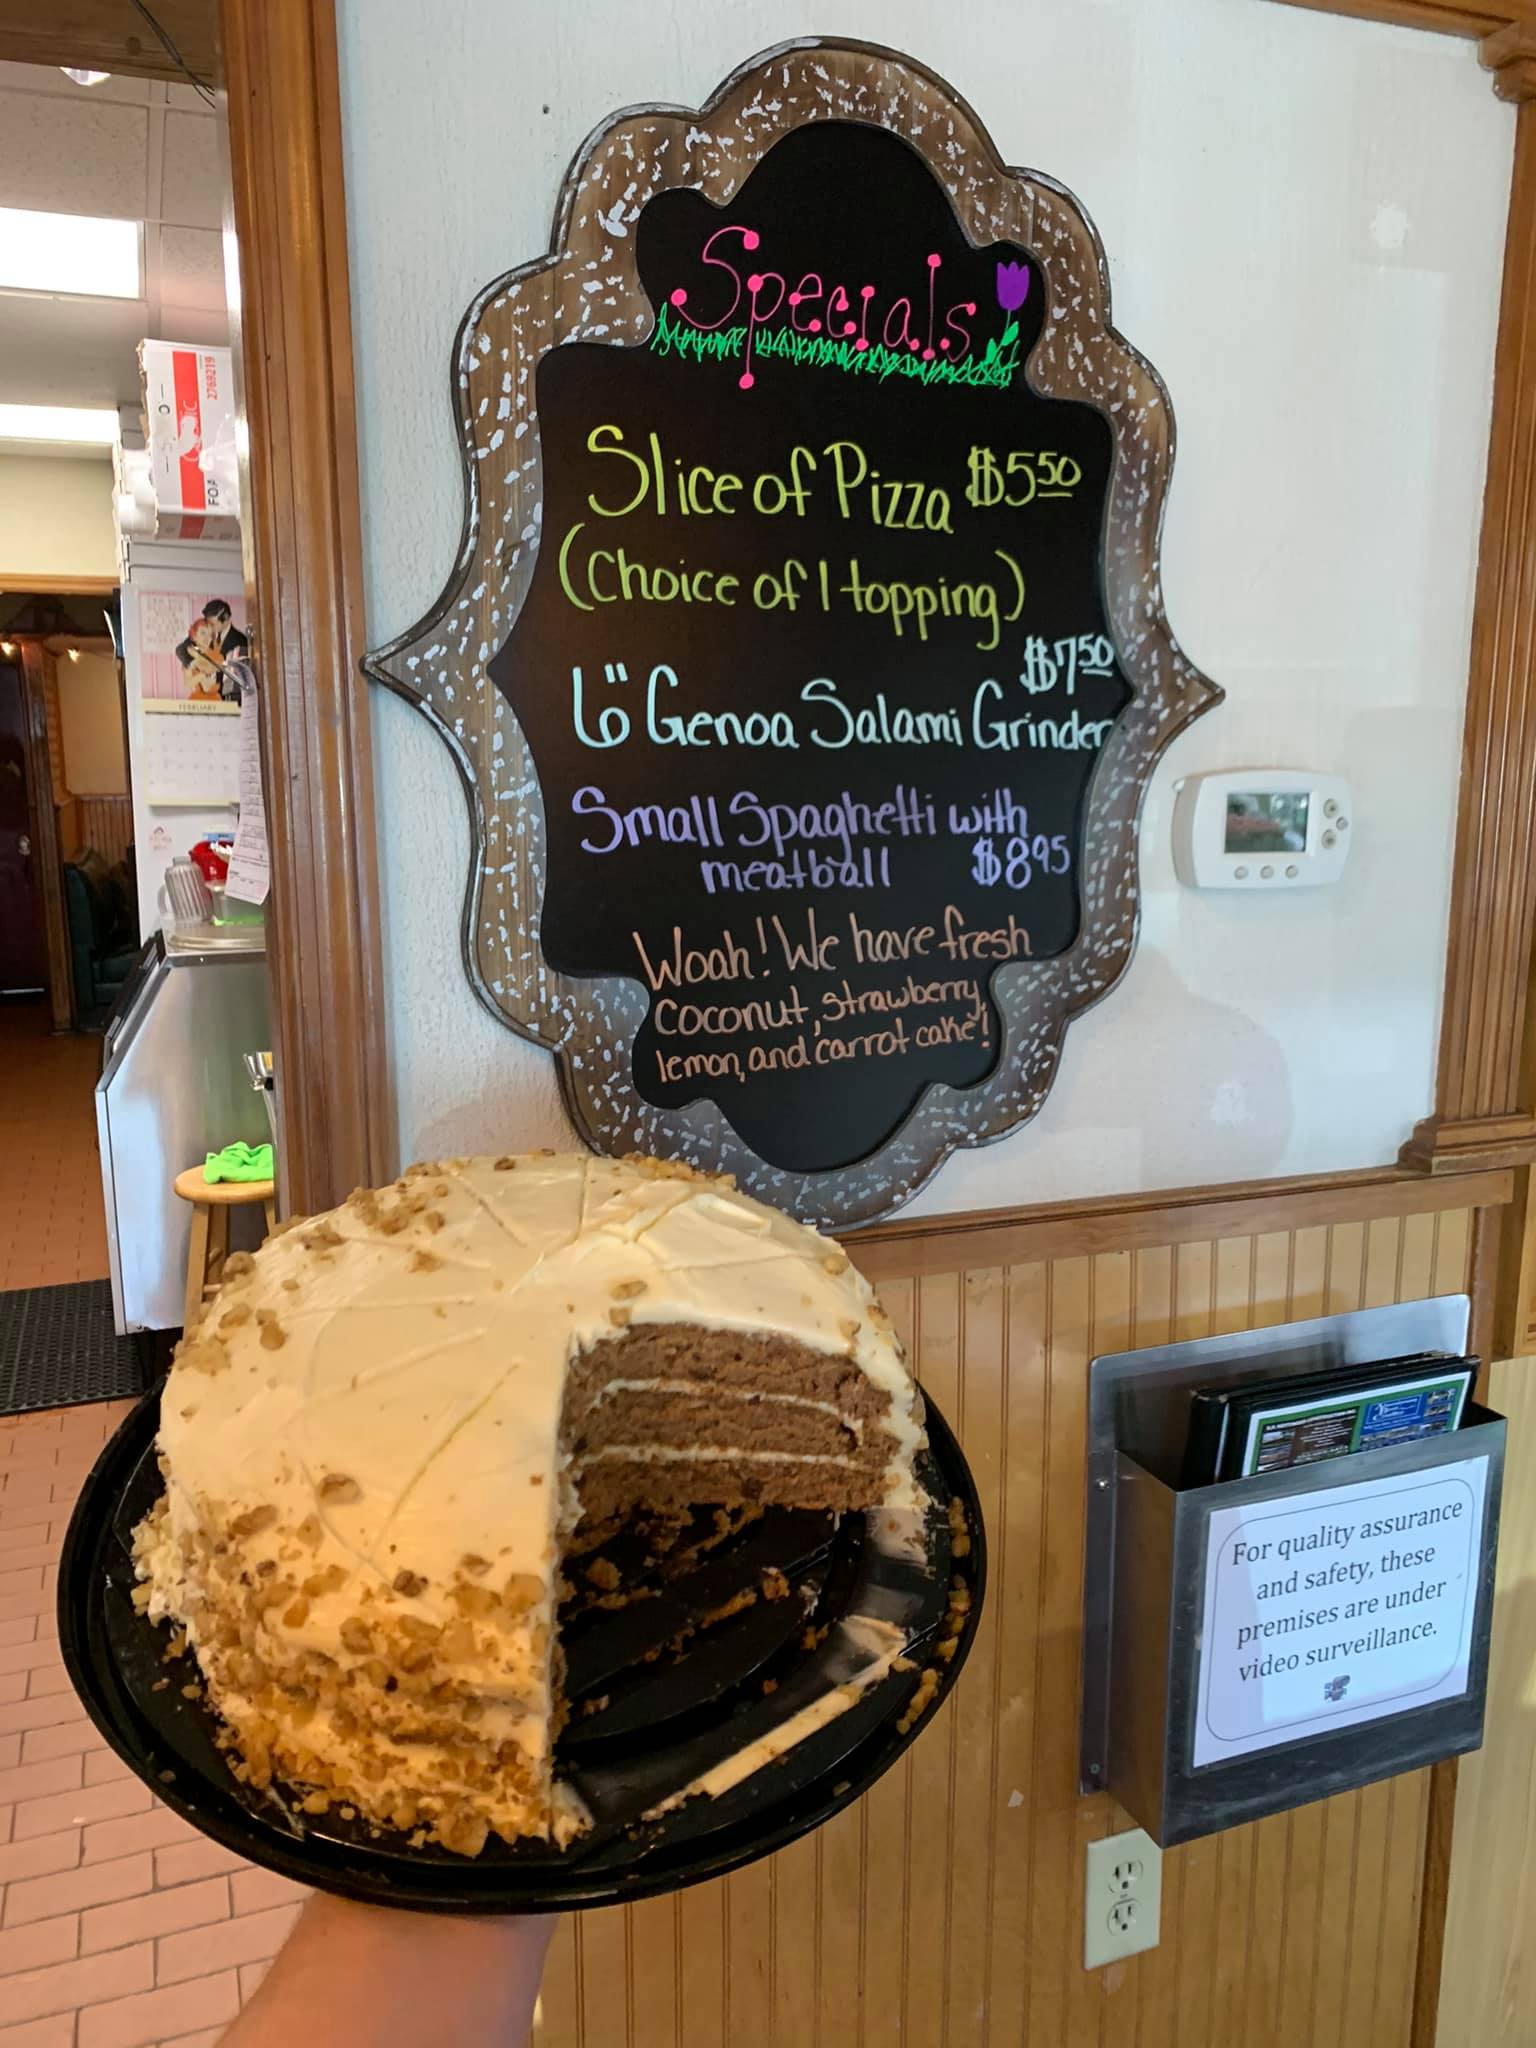 Specials
Slice of Pizza $5.50
(Choice of 1 topping)
$7.50
6" Genoa Salami Grinder
Small Spaghetti with
meatball $8.95
Woah! We have fresh
coconut, strawberry,
lemon, and carrot cake!
2769219
FEBRUARY
For quality assurance
and safety, these
premises are under
video surveillance.